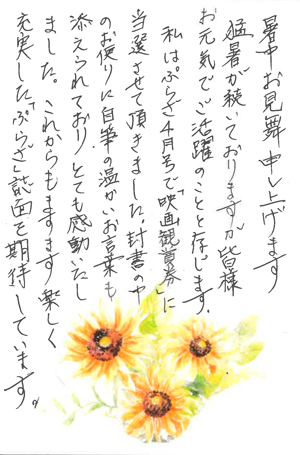 暑中お見舞申し上げます
猛暑が続いておりますが皆様
お元気でご活躍のことと存じます。
私はぷらざ4月号で「映画観賞券」に
当選させて頂きました。封書の中
のお便りに自筆の温かいお言葉も
添えられており、とても感動いたし
ました。これからもますます楽しく
充実した「ぷらざ」誌面を期待しています。